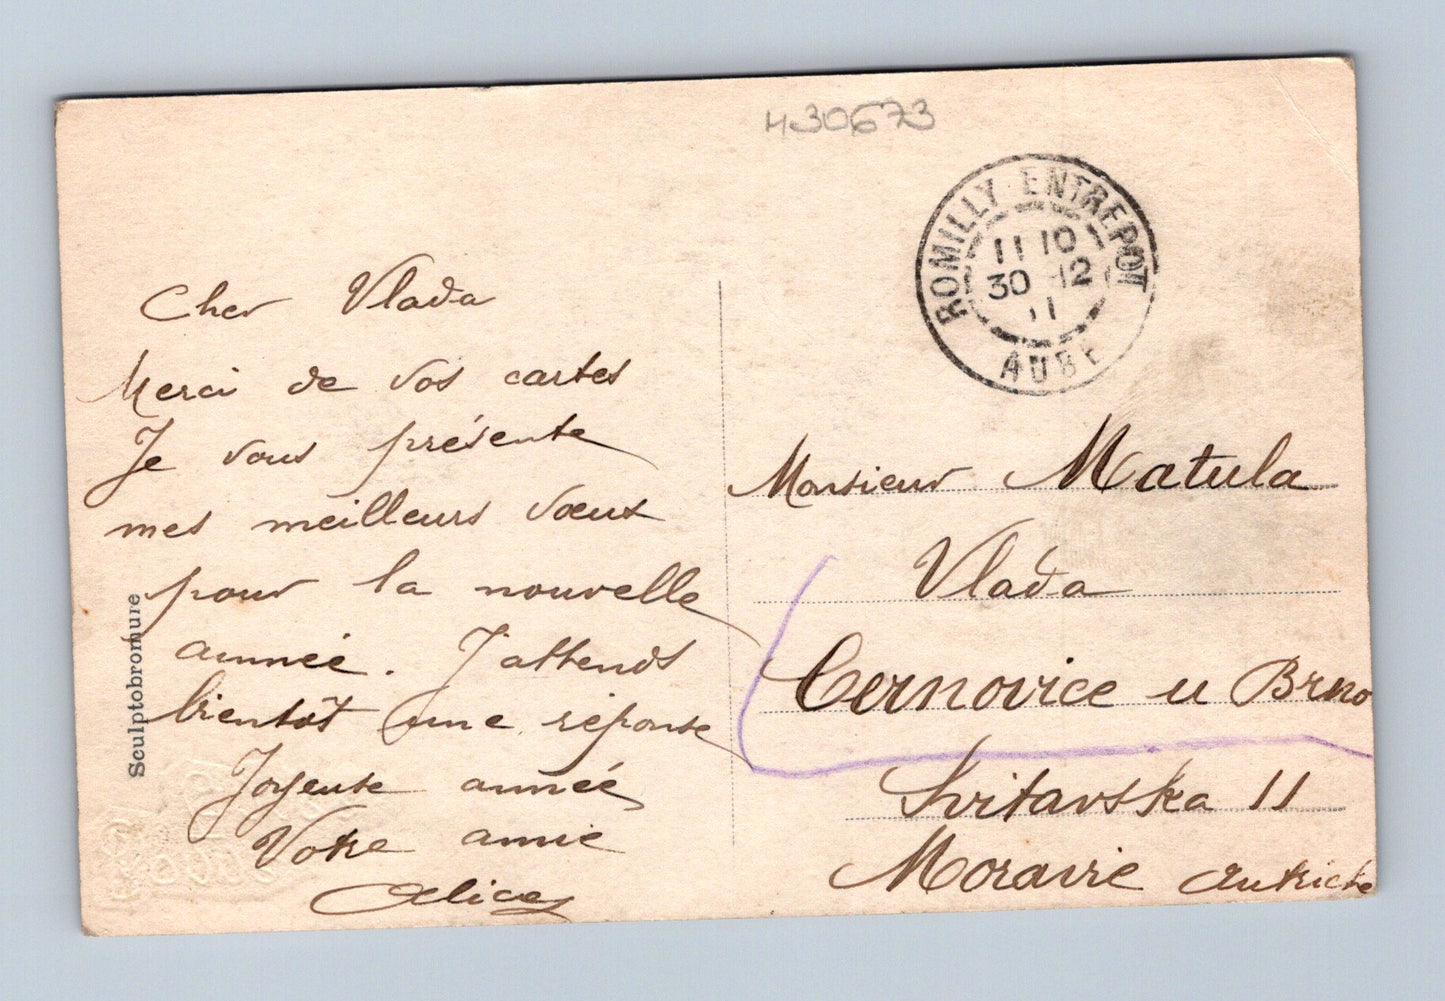 430673
ROMILLY-ENTREPOT
11 10
30 -12
11
AUBE
Cher Vlada
Merci de vos cartes
Je vous présente
mes meilleurs vœux
pour la nouvelle
année. J'attends
bientôt une réponse
Joyeuse année
Votre amie
Alice
Sculptobromure
Monsieur Matula
Vlada
Cernovice u Brno
Svitavska 11
Moravie Autriche